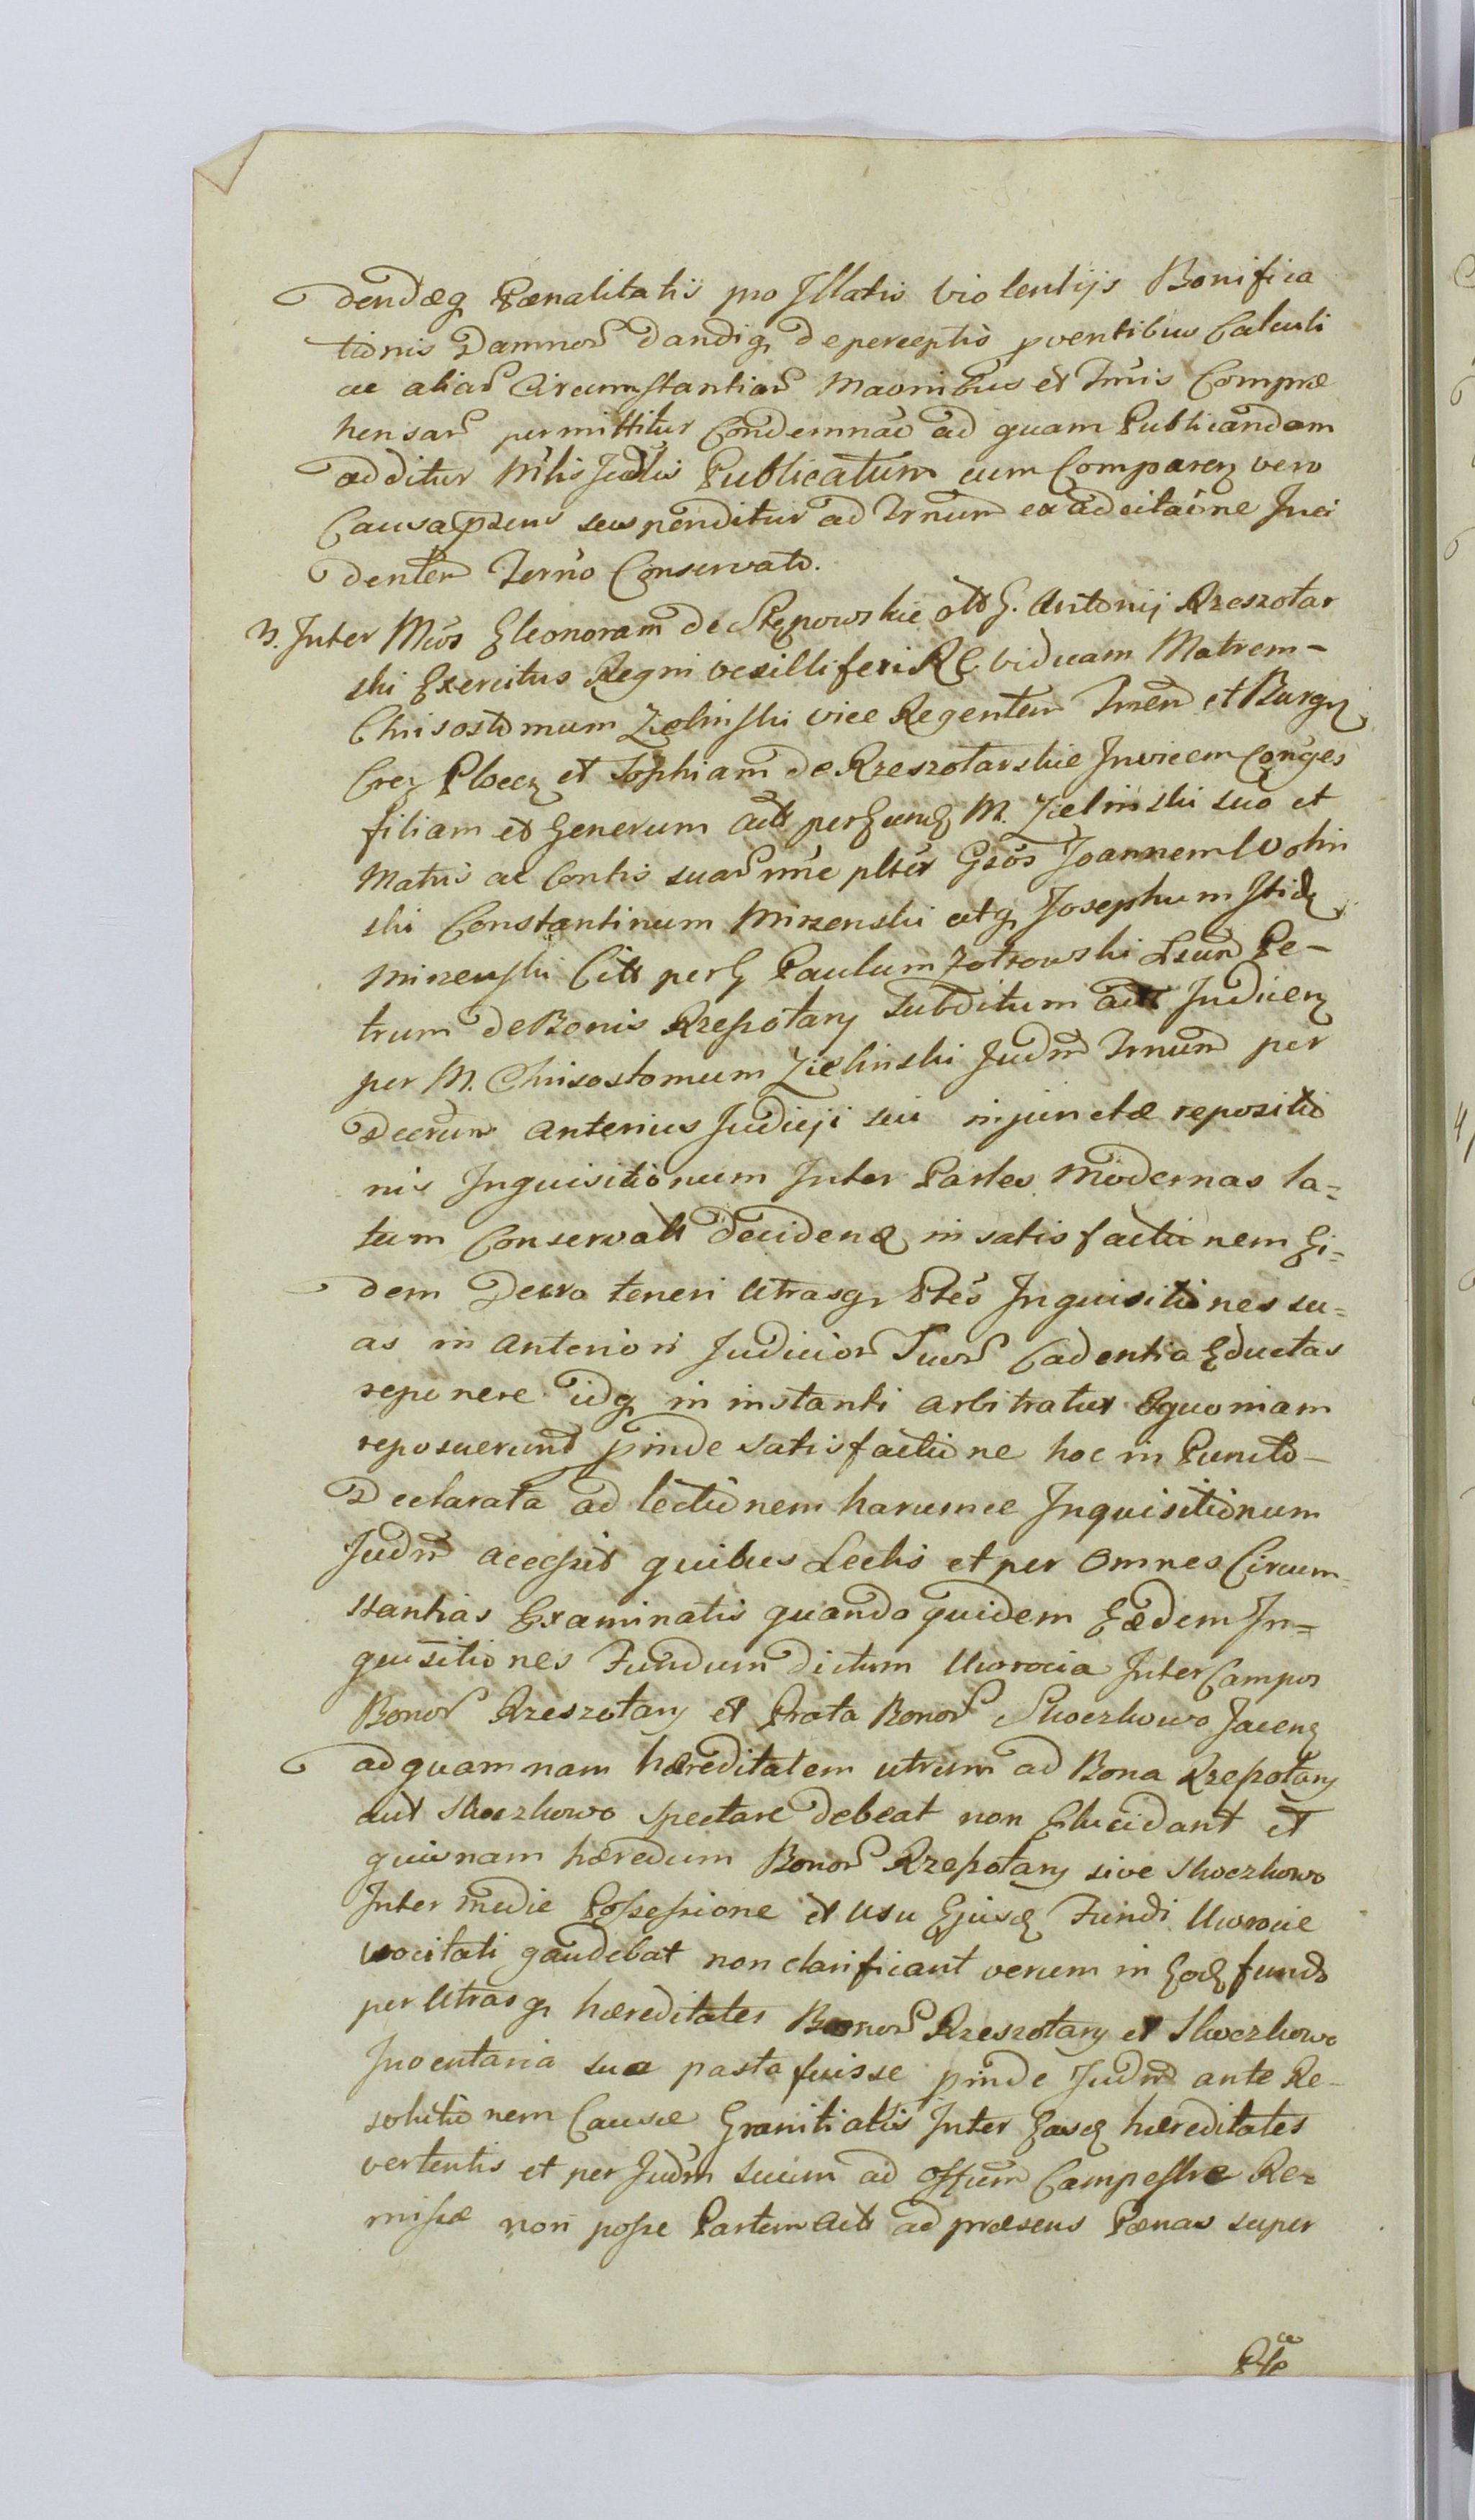 dendæq Pœnalitatis pro Illatis violentijs Bonifica
tionis Damnor Dandiq de perceptis pventibus Calculi
ac aliar Circumstantiar Maonibus et Tmis Compræ
hensar permittitur Condemnao ad quam Publicandam
additur Mlis Judlis Publicatum cum Comparen vero
Causa pnsens suspenditur ad Trnum ex adcitaone Inci
denten Terno Conservato.
3. Inter Mcos Eleonoram de Stępowskie olt G. Antonij Rzeszotar
ski Exercitus Regni vexilliferi R viduam Matrem-
Chrisostomum Zielinski vice Regentem Trren et Burgn
Cren Plocen et Sophiam de Rzeszotarskie Invicem Conges
filiam et Generum Act per eund M. Zielinski suo et
Matris ac Contis suar nne plter Gsos Joannem Wolin
ski Constantinum Mirzenski atq Josephum Itid
Mirzenski Citt per G Paulum Zotrowski Lsum Pe-
trum de Bonis Rzeszotary Subditum act Judicen
per M. Chrisostomum Zielinski Judm Trnum per
Decrum anterius Judicij sui injunctæ repositio
nis Inquisitionum Inter Partes Modernas la=
tum Conservatt Decidend in satisfactionem Ei=
dem Decro teneri Utrasq Ptes Inquisitiones su=
as in anteriori Judicior Suor Cadentia Eductas
reponere idq in instanti arbitratur Equoniam
reposuerunt pinde satisfactione hoc in Puncto-
Declarata ad lectionem harumce Inquisitionum
Judm acessit quibus Lectis et per Omnes Circum=
stantias Examinatis quando quidem Eædem In=
quisitiones Fundum dictum Uwrocia Inter Campos
Bonor Rzeszotary et Prata Bonor Skoczkowo Jacen
ad quam nam hæreditatem utrum ad Bona Rzeszotary
aut Skoczkowo spectare debeat non Elucidant et
quisnam hæredum Bonor Rzeszotary sive Skoczkowo
Intermedie Possessione et usu Ejusd Fundi Uwrocie
vocitati gaudebat non clarificant verum in Eod fundo
per Utrasq hæreditates Bonor Rzeszotary et Skoczkowo
Inventaria sua pasta fuisse pinde Judm ante Re-
solutionem Causæ Granitialis Inter Easd hæreditates
vertentis et per Judm Suum ad Offum Campestre Re=
missæ non posse Partem Act ad præsens Pœnas super